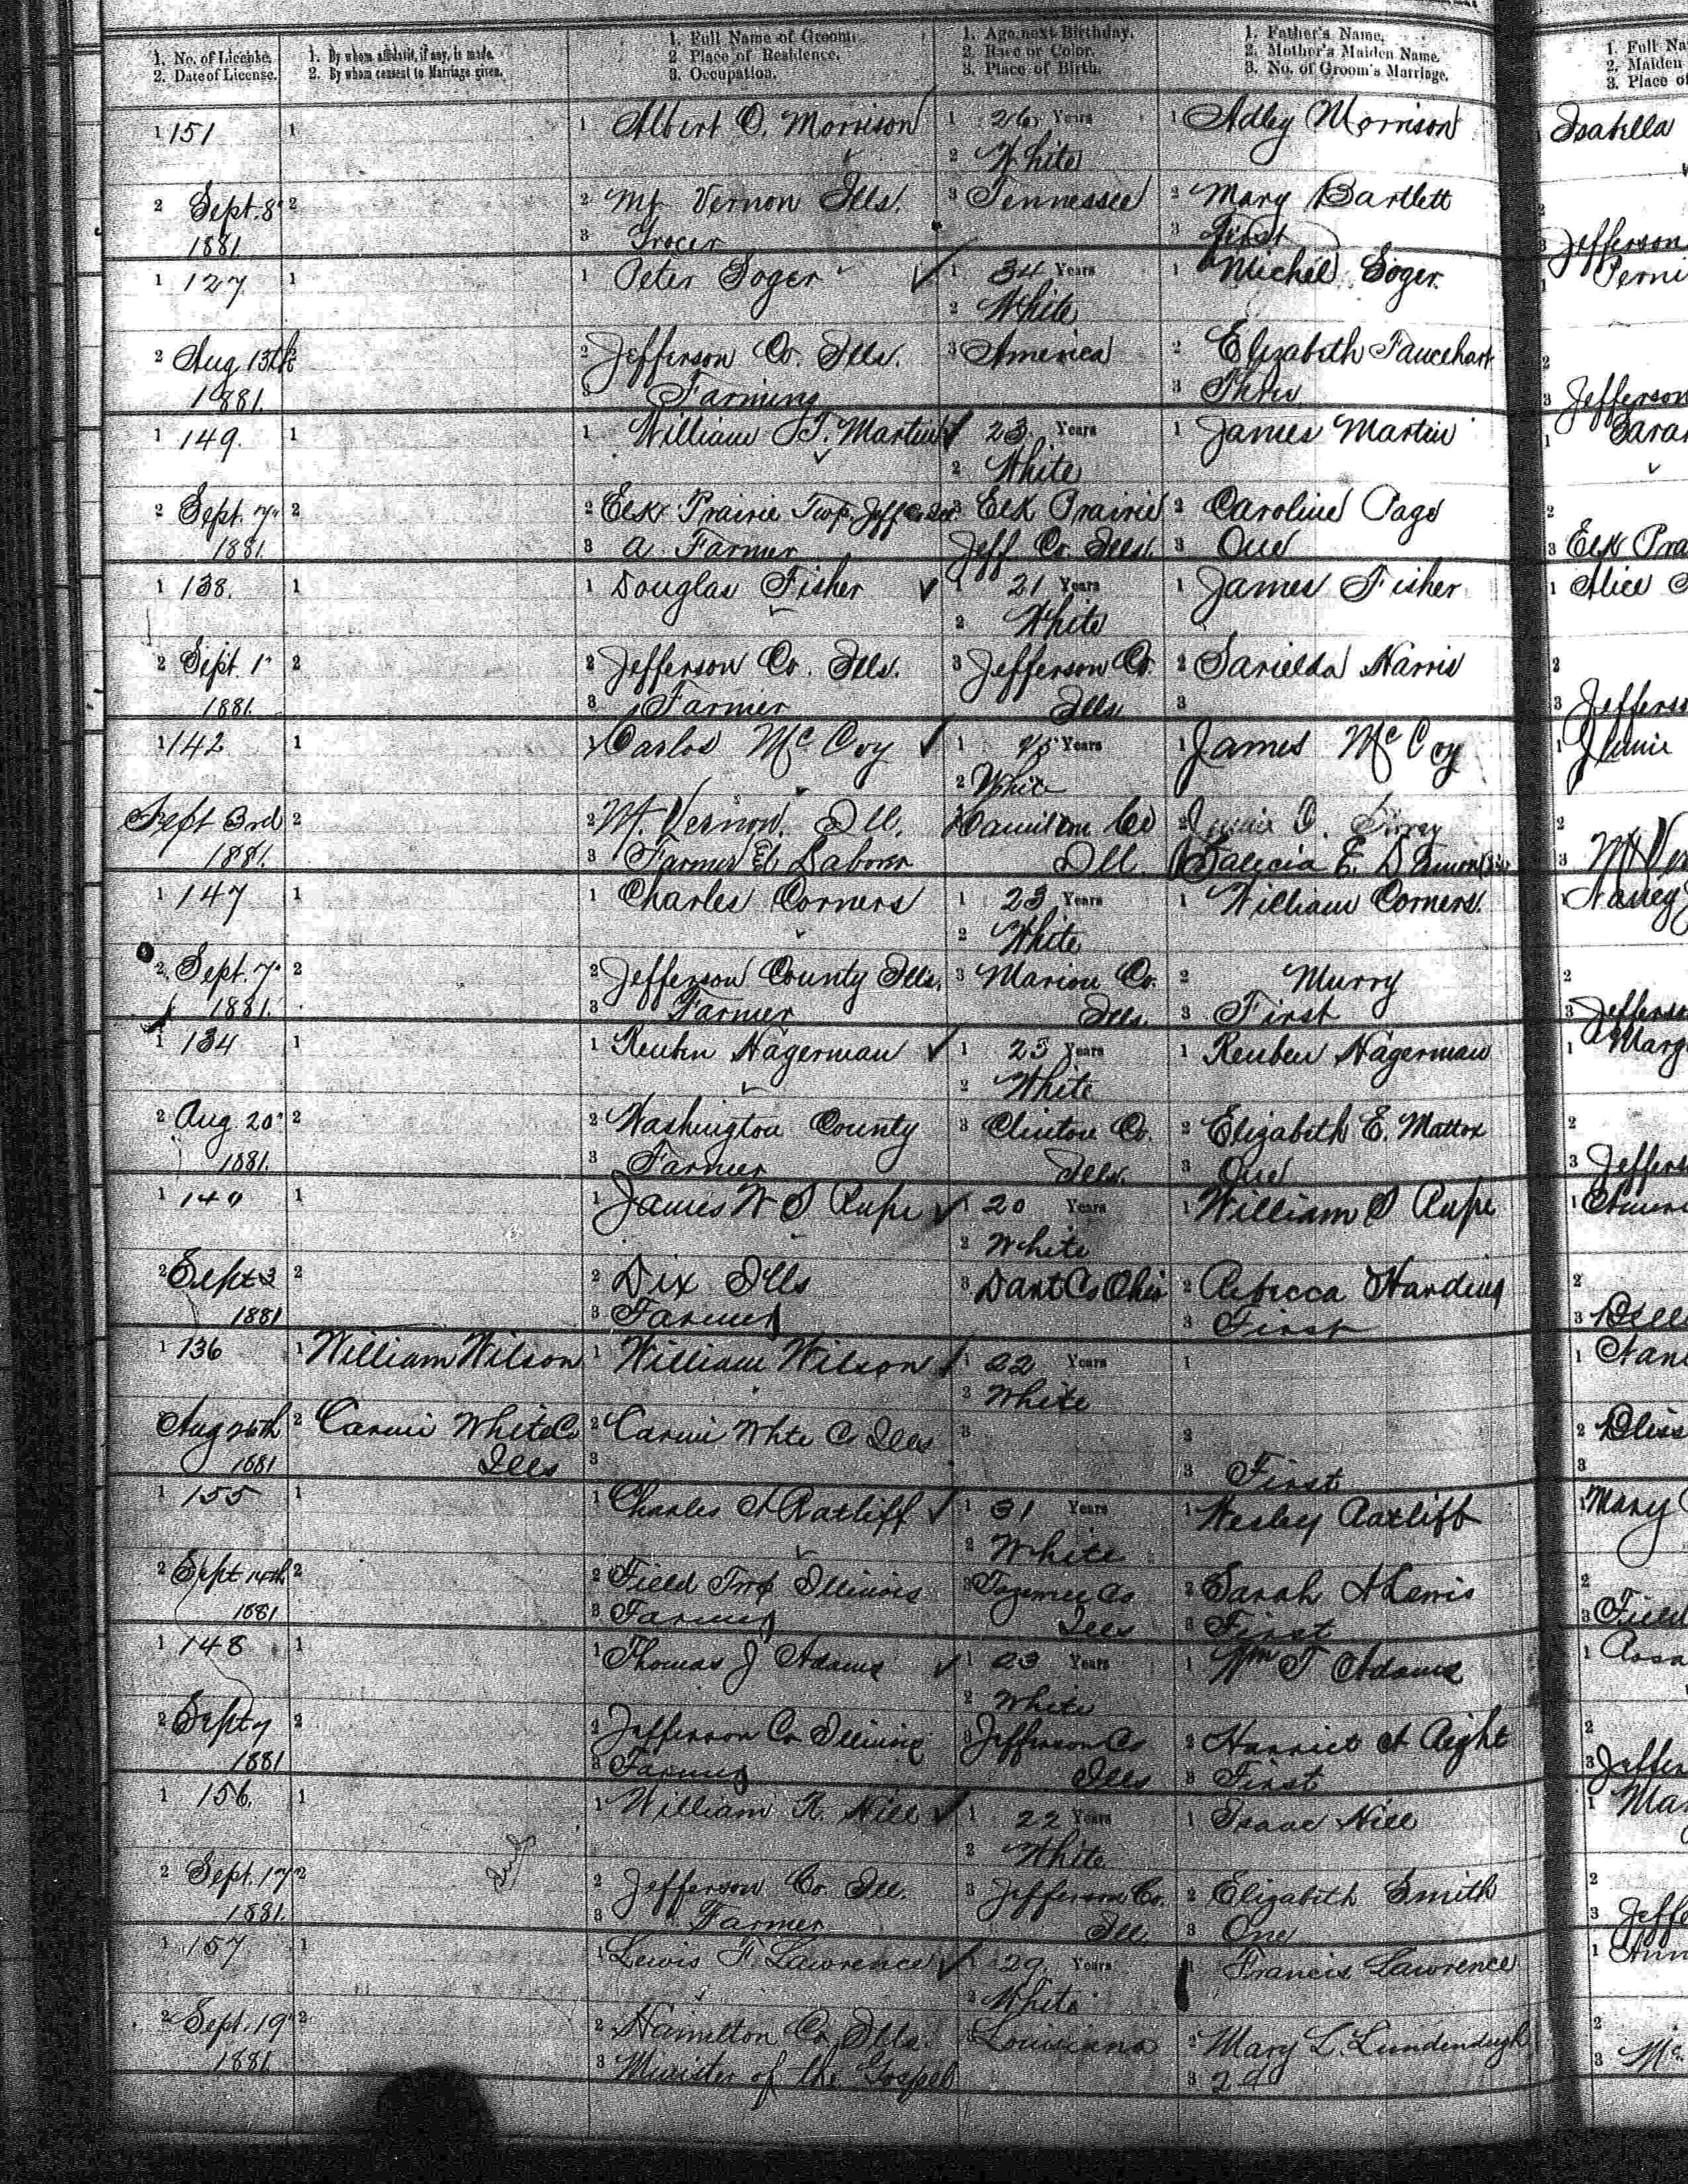 1. No. of License.
2. Date of License.
1. By whom affidavit, if any, is made.
2. By whom consent to Marriage given.
1. Full Name of Groom.
2 Place of Residence.
3. Occupation.
1. Age next Birthday.
2. Race or Color.
3. Place of Birth.
1. Father's Name,
2. Mother's Maiden Name.
3. No. of Groom's Marriage.
1. Full Na
2. Maiden
3. Place of
1 151 1 1 Albert O. Morrison 1 26 Years 1 Adley Morrison Isabella
2 White
2 Sept. 8" 2 2 Mt Vernon Ills. 3 Tennessee 2 Mary Bartlett
1881. 3 Grocer 3 First 3 Jefferson
1 127 1 1 Peter Soger 1 34 Years 1 Michel Soger. 1 Perni
2 White
2 Aug 13th 2 2 Jefferson Co. Ills. 3 America 2 Elizabeth Faucehart 2
1881. 3 Farming 3 Three 3 Jefferson
1 149. 1 1 William T. Martin 1 23 Years 1 James Martin 1 Sara
2 White
2 Sept. 7" 2 2 Elk Prairie Twp. Jeff Co Ill. 3 Elk Prairie 2 Caroline Page 2
1881. 3 A Farmer Jeff Co Ills. 3 One 3 Elk Pra
1 138. 1 1 Douglas Fisher 1 21 Years 1 James Fisher 1 Alice
2 White
2 Sept. 1" 2 2 Jefferson Co. Ills. 3 Jefferson Co. 2 Sarielda Harris 2
1881. 3 Farmer Ills. 3 3 Jefferso
1 142 1 1 Carlos McCoy 1 Years 1 James McCoy 1 Jennie
2 White
Sept 3rd 2 2 Mt. Vernon, Ill. Hamilton Co 2 2
1881. 3 Farmer & Laborer Ill. 3 Mt Ver
1 147 1 1 Charles Corners 1 23 Years 1 William Corners. 1 Nancy
2 White
2 Sept. 7" 2 2 Jefferson County Ills. 3 Marion Co. 2 Murry 2
1881. 3 Farmer Ills. 3 First 3 Jefferso
1 134 1 1 Reuben Hagerman 1 25 Years 1 Reuben Hagerman 1 Marg
2 White
2 Aug 20" 2 2 Washington County 3 Clinton Co. 2 Elizabeth E. Mattox 2
1881. 3 Farmer Ills. 3 One 3 Jeffers
1 140 1 1 James W S Rupe 1 20 Years 1 William S Rupe 1
2 White
2 Sept 3 2 2 Dix Ills 3 Dark Co Ohio 2 Rebecca Harding 2
1881 3 Farmer 3 First 3
1 136 1 William Wilson 1 William Wilson 1 22 Years 1 1 Nan
2 White
Aug 26th 2 Carmi White Co 2 Carmi Whte Co Ills 3 2 2
1881 Ills 3 3 First 3
1 155 1 1 Charles A Ratliff 1 31 Years 1 Wesley Ratliff 1 Mary
2 White
2 Sept 14th 2 2 Field Twp Illinois 3 Tazewell Co 2 Sarah A Lewis 2
1881 3 Farmer Ills 3 First 3 Field
1 148 1 1 Thomas J Adams 1 23 Years 1 Wm T Adams 1 Rosa
2 White
2 Sept 7 2 2 Jefferson Co Illinois 3 Jefferson Co 2 Harriet A Right 2
1881 3 Farmer Ills 3 First 3 Jeffer
1 156. 1 1 William R. Hill 1 22 Years 1 Isaac Hill 1 Mar
2 White
2 Sept. 17 2 2 Jefferson Co. Ill. 3 Jefferson Co. 2 Elizabeth Smith 2
1881. 3 Farmer Ill. 3 One 3 Jeffe
1 157 1 1 Lewis F. Lawrence 1 29 Years 1 Francis Lawrence 1 Ann
2 White
2 Sept. 19" 2 2 Hamilton Co, Ills. 3 Louisiana 2 Mary L. 2
1881. 3 Minister of the Gospel 3 2d 3 Mc